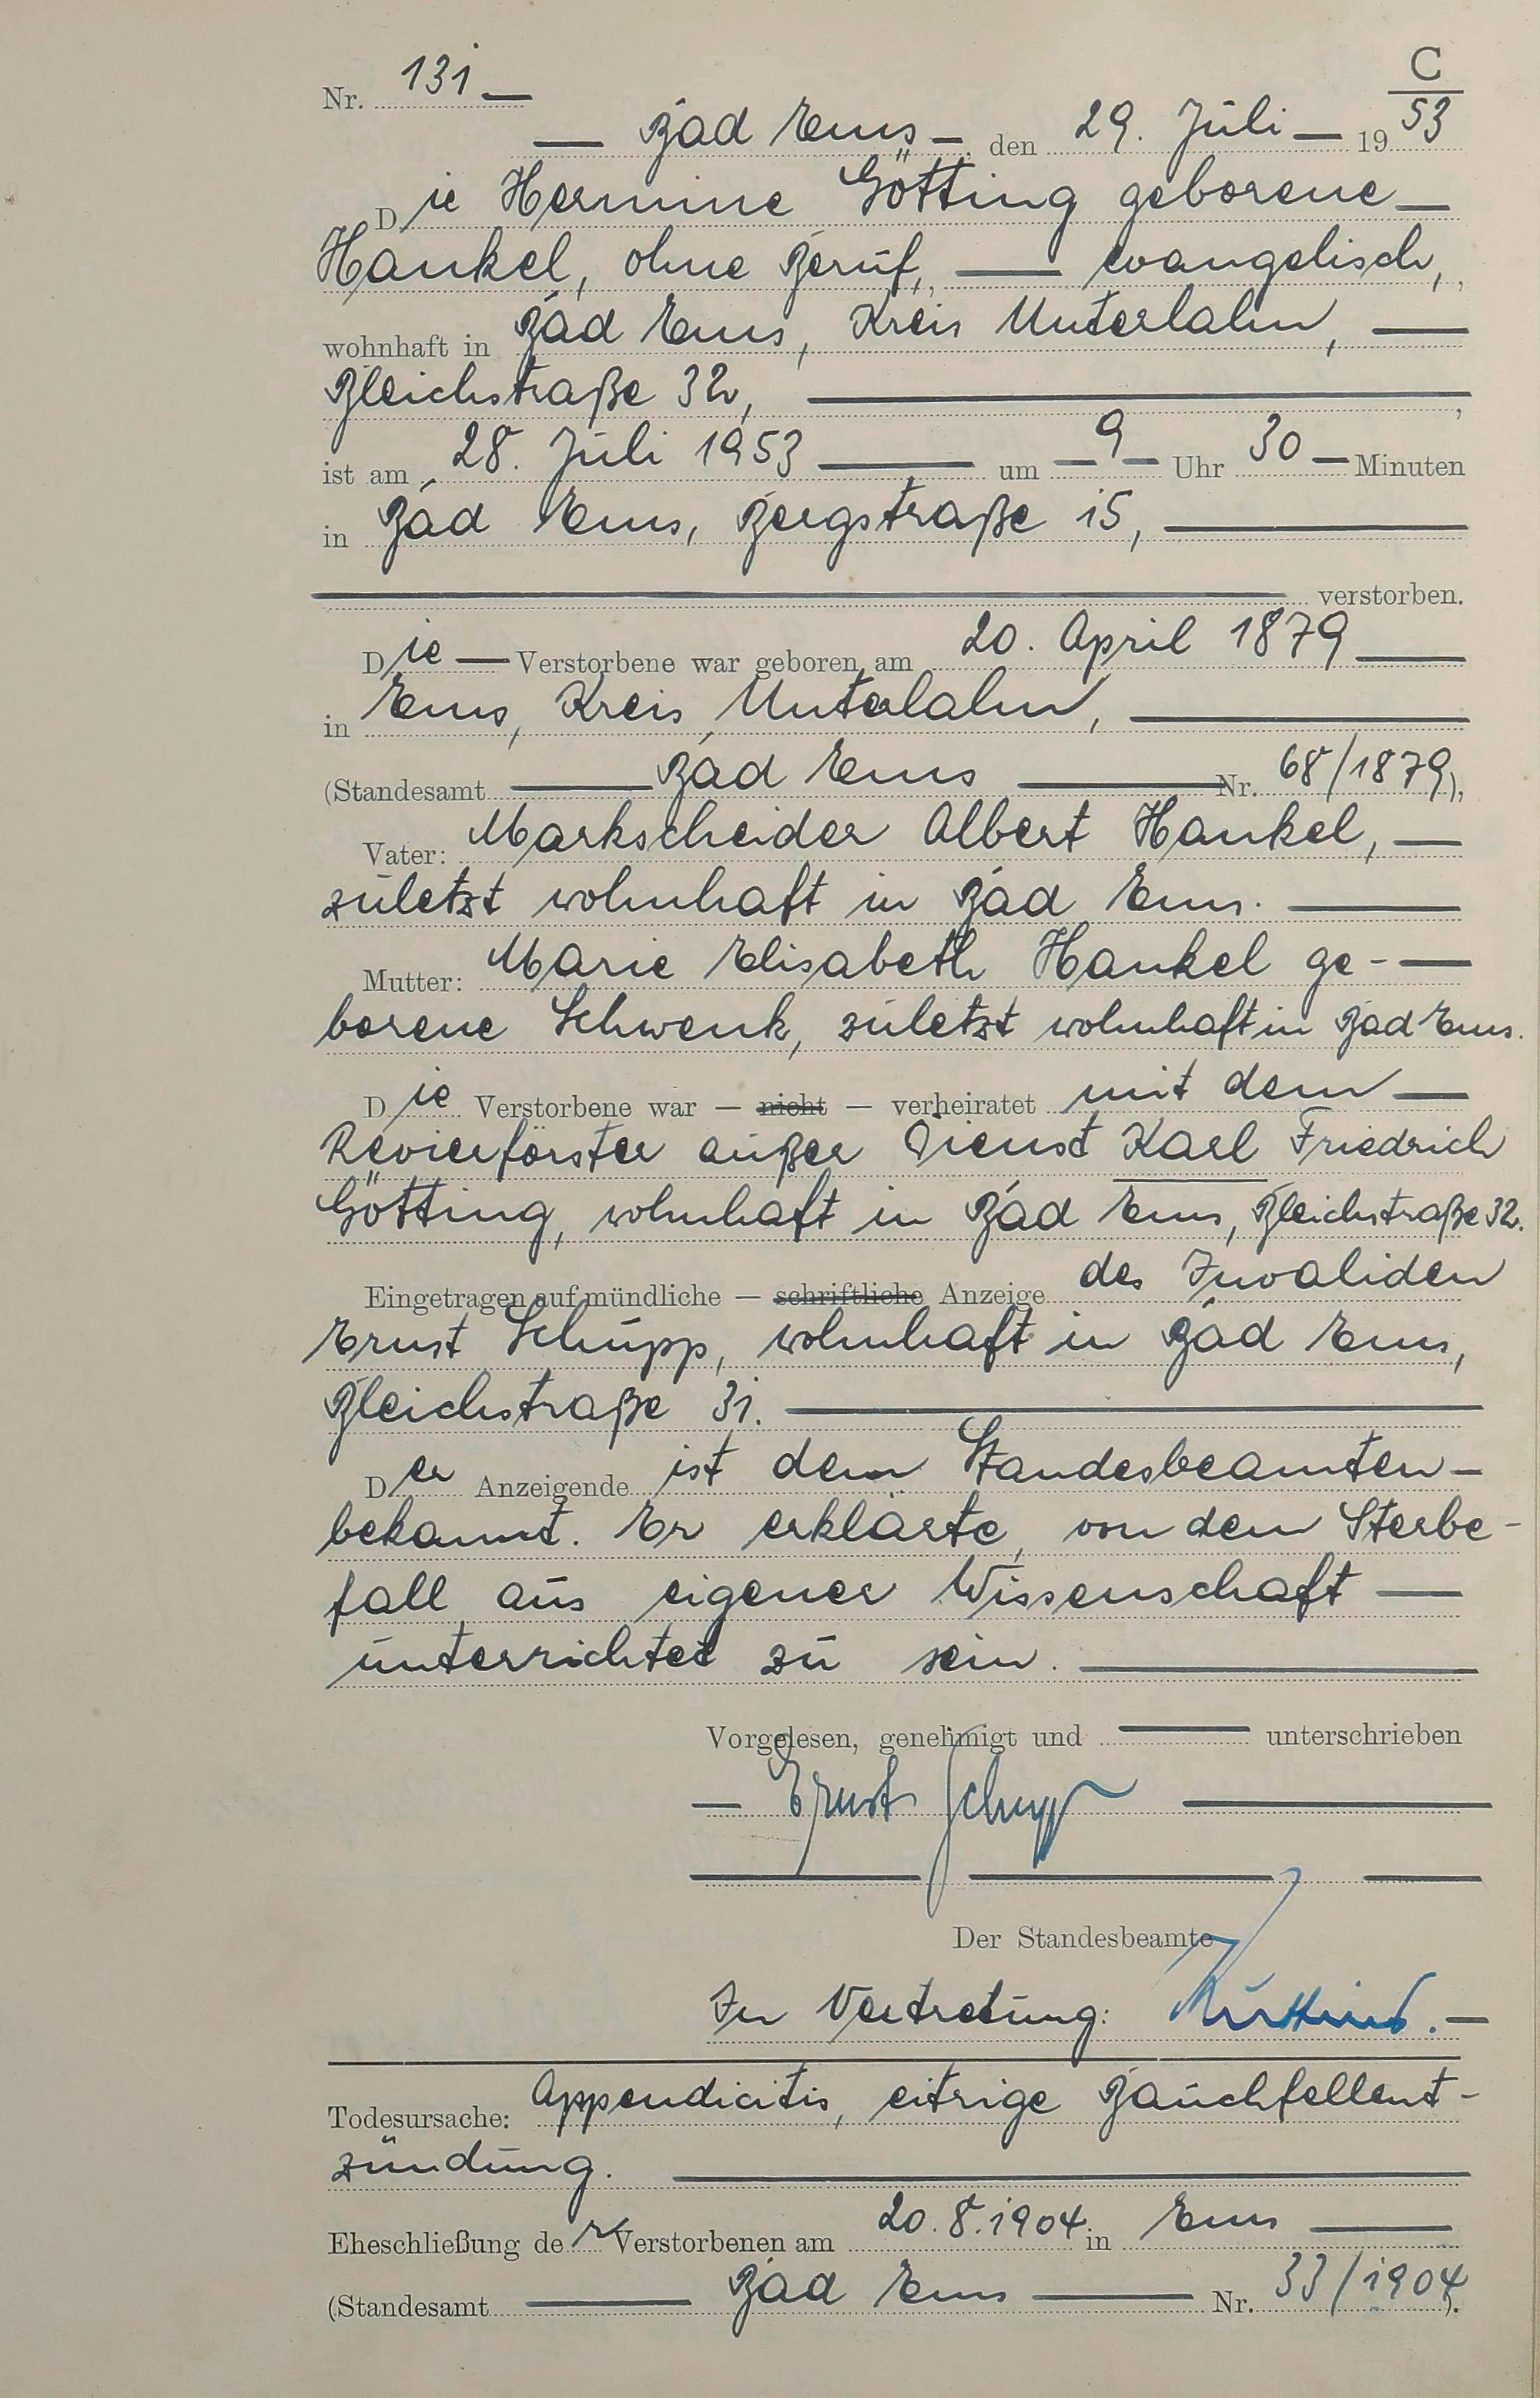 C
Nr. 131 —
— Bad Ems — den 29. Juli — 1953
Die Hermine Götting geborene —
Hankel, ohne Beruf, — evangelisch,
wohnhaft in Bad Ems, Kreis Unterlahn, —
Bleichstraße 32, —
ist am 28. Juli 1953 — um — 9 — Uhr 30 — Minuten
in Bad Ems, Bergstraße 15, —
— verstorben.
Die — Verstorbene war geboren am 20. April 1879 —
in Ems, Kreis Unterlahn, —
(Standesamt — Bad Ems — Nr. 68/1879),
Vater: Markscheider Albert Hankel, —
zuletzt wohnhaft in Bad Ems. —
Mutter: Marie Elisabeth Hankel ge- —
borene Schwenk, zuletzt wohnhaft in Bad Ems.
Die Verstorbene war — nicht — verheiratet mit dem —
Revierförster außer Dienst Karl Friedrich
Götting, wohnhaft in Bad Ems, Bleichstraße 32.
Eingetragen auf mündliche — schriftliche Anzeige des Invaliden
Ernst Schupp, wohnhaft in Bad Ems,
Bleichstraße 31. —
Der Anzeigende ist dem Standesbeamten —
bekannt. Er erklärte, von dem Sterbe-
fall aus eigener Wissenschaft —
unterrichtet zu sein. —
Vorgelesen, genehmigt und — unterschrieben
— Ernst Schupp —
Der Standesbeamte
In Vertretung:
Todesursache: Appendicitis, eitrige Bauchfellent-
zündung. —
Eheschließung der Verstorbenen am 20.8.1904 in Ems —
(Standesamt — Bad Ems — Nr. 33/1904).